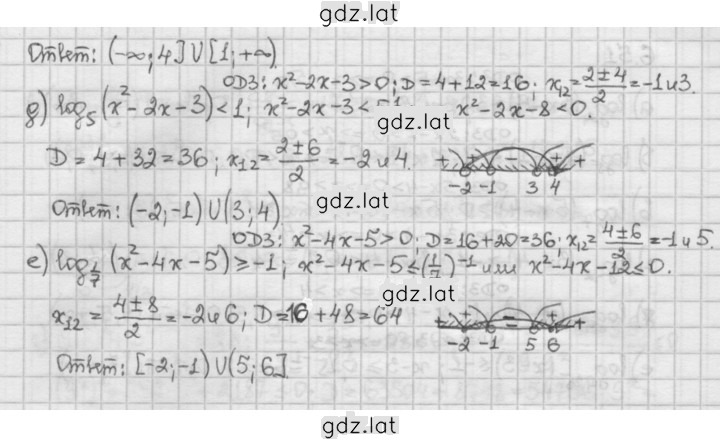 gdz.lat
Ответ: (-∞; 4] ∪ [1; +∞)
ОДЗ: x²-2x-3>0; D=4+12=16; x₁₂=(2±4)/2=-1 и 3.
д) log₅(x²-2x-3)<1; x²-2x-3<5¹ x²-2x-8<0.
gdz.lat
D=4+32=36; x₁₂=(2±6)/2=-2 и 4. + - + -2 -1 3 4
Ответ: (-2;-1) ∪ (3; 4)
gdz.lat
ОДЗ: x²-4x-5>0; D=16+20=36; x₁₂=(4±6)/2=-1 и 5.
е) log₁/₇(x²-4x-5)≥-1; x²-4x-5≤(1/7)⁻¹ или x²-4x-12≤0.
gdz.lat
x₁₂=(4±8)/2=-2 и 6; D=16+48=64 + - + -2 -1 5 6
Ответ: [-2;-1) ∪ (5; 6]
gdz.lat